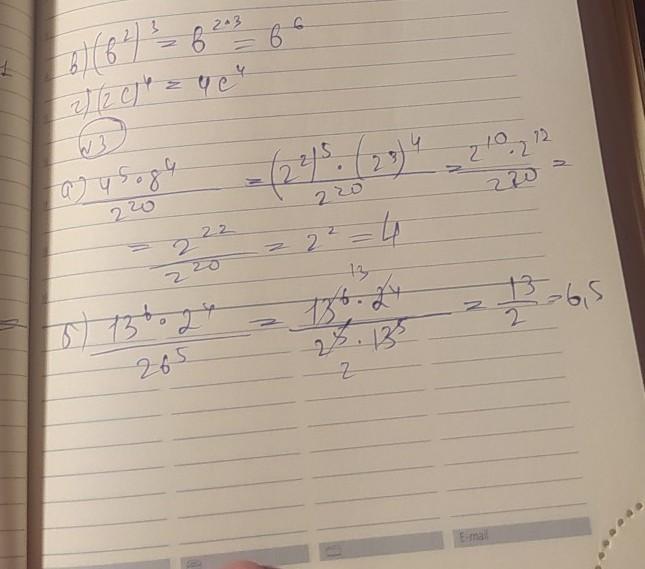 в) (b²)³ = b²·³ = b⁶
г) (2c)⁴ = 4c⁴
N3
а) 4⁵·8⁴/2²⁰ = (2²)⁵·(2³)⁴/2²⁰ = 2¹⁰·2¹²/2²⁰ =
= 2²²/2²⁰ = 2² = 4
б) 13⁶·2⁴/26⁵ = 13⁶·2⁴/2⁵·13⁵ = 13/2 = 6,5
13
2
E-mail